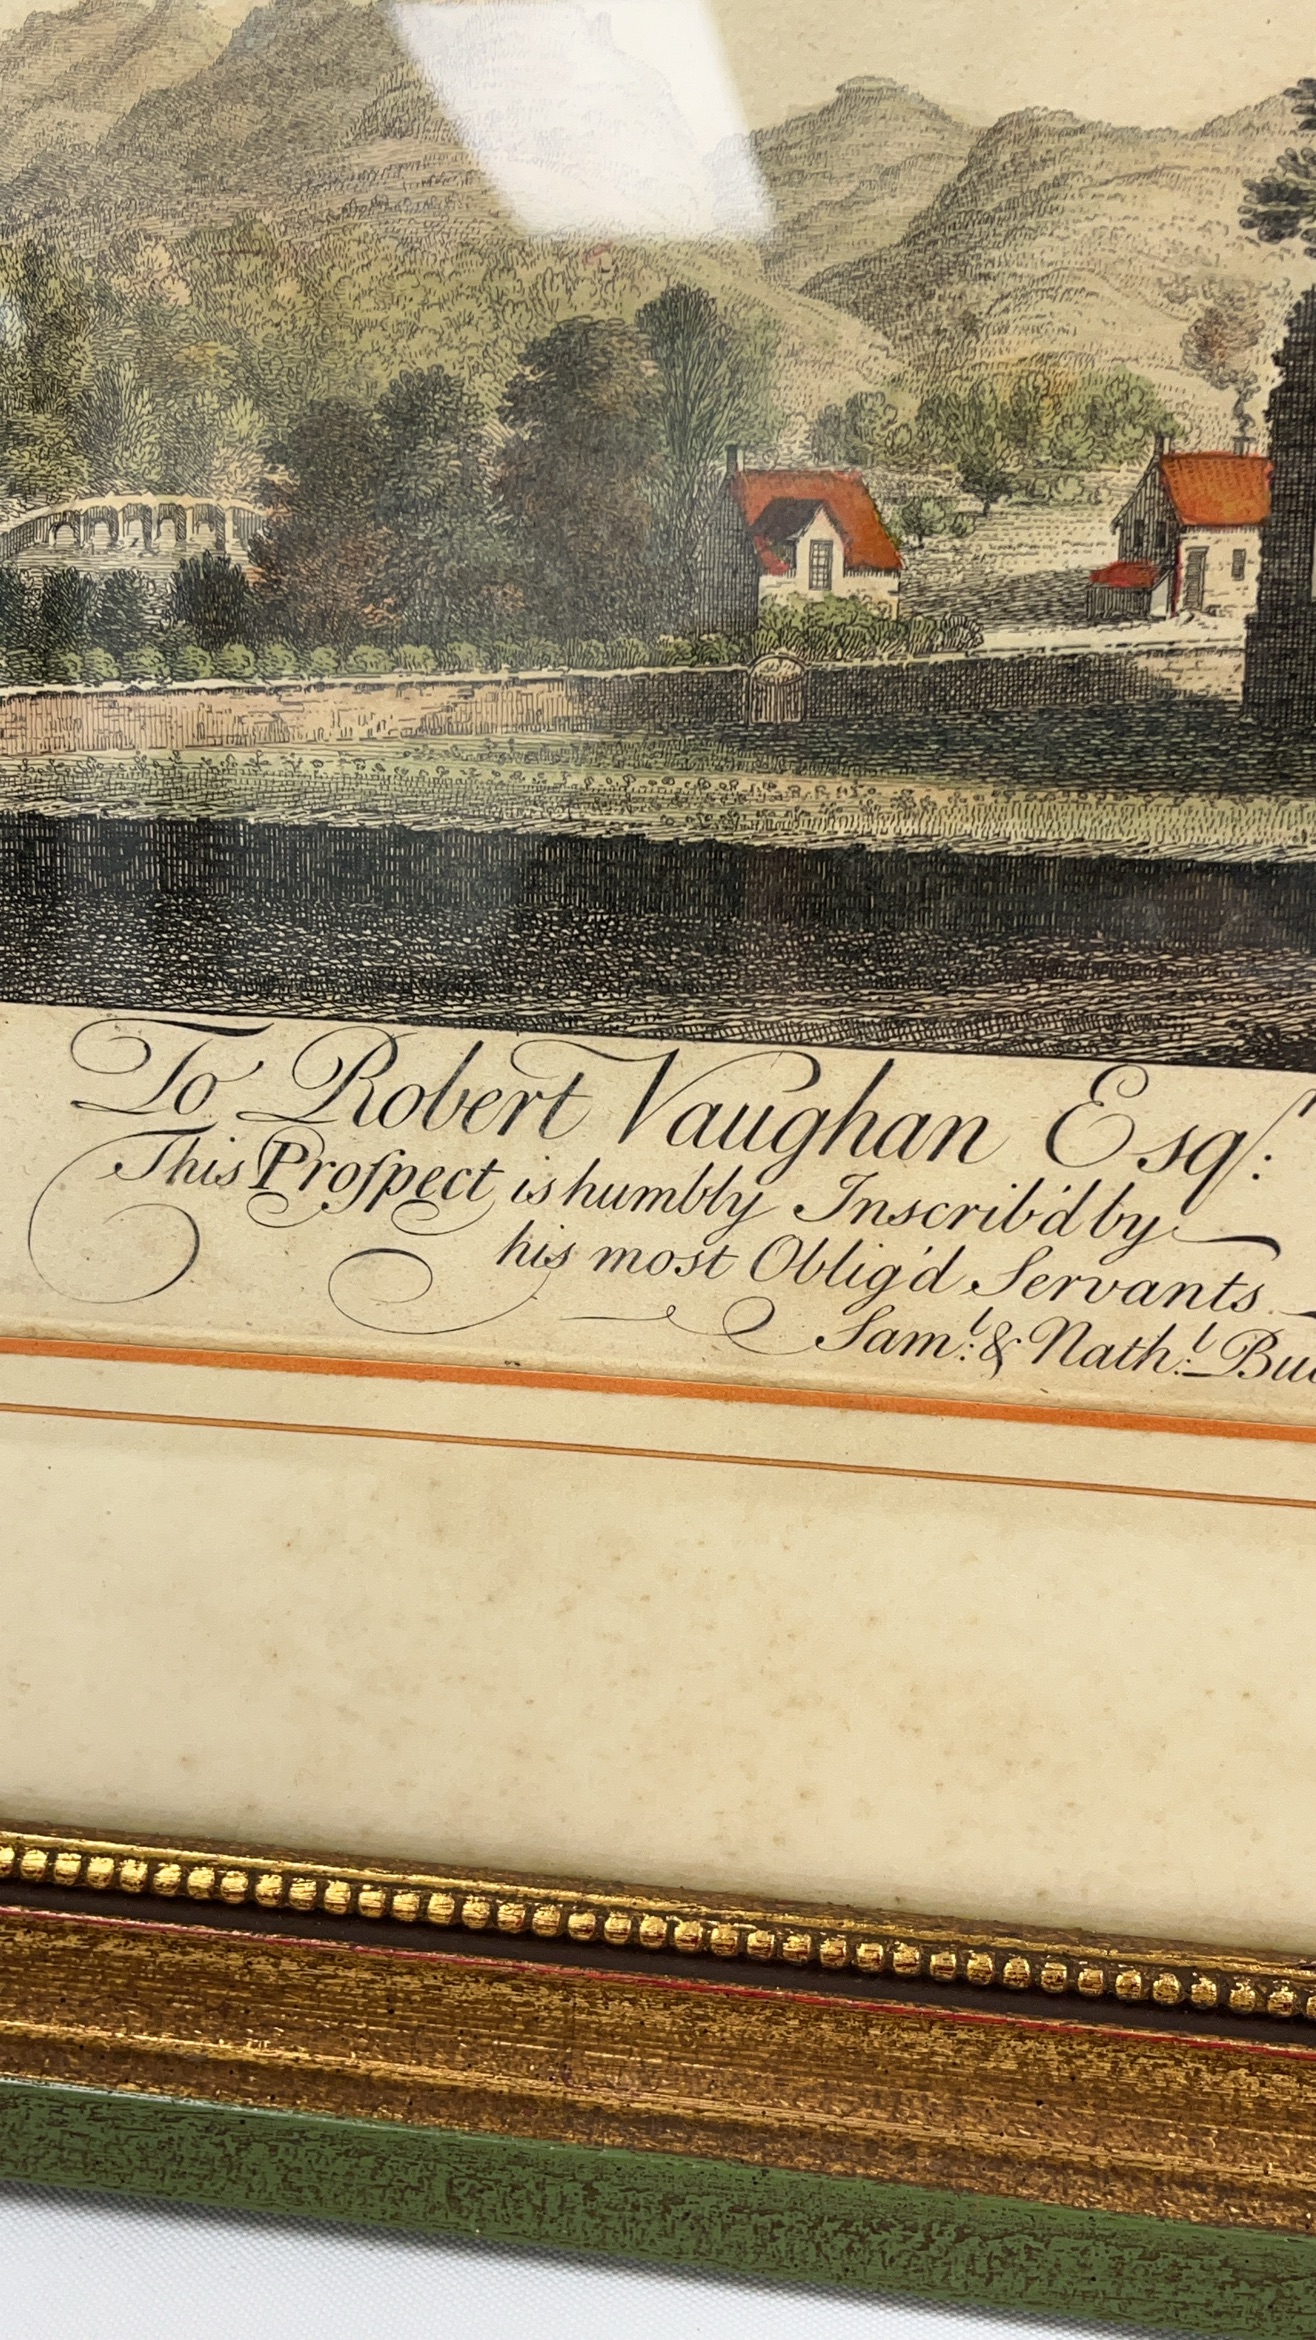 To Robert Vaughan Esqr:
This Proſpect is humbly Inscrib'd by
his most Oblig'd Servants
Saml: & Nathl: